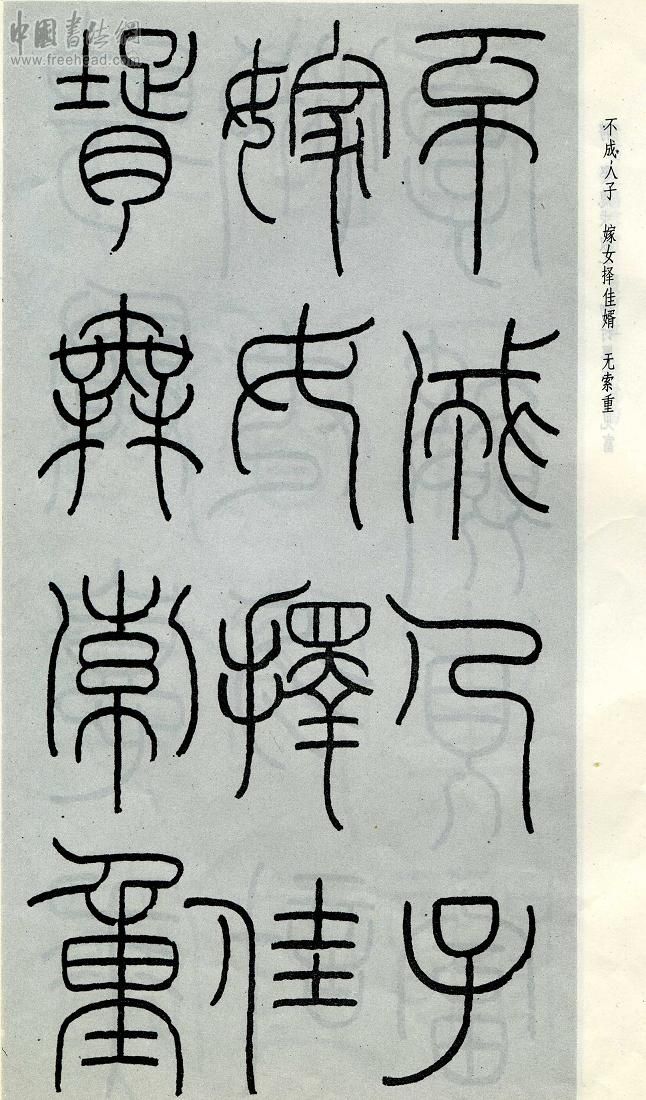 不成人子　嫁女择佳婿　无索重
不成人子
嫁女擇佳
壻無索重
中國書法網
www.freehead.com